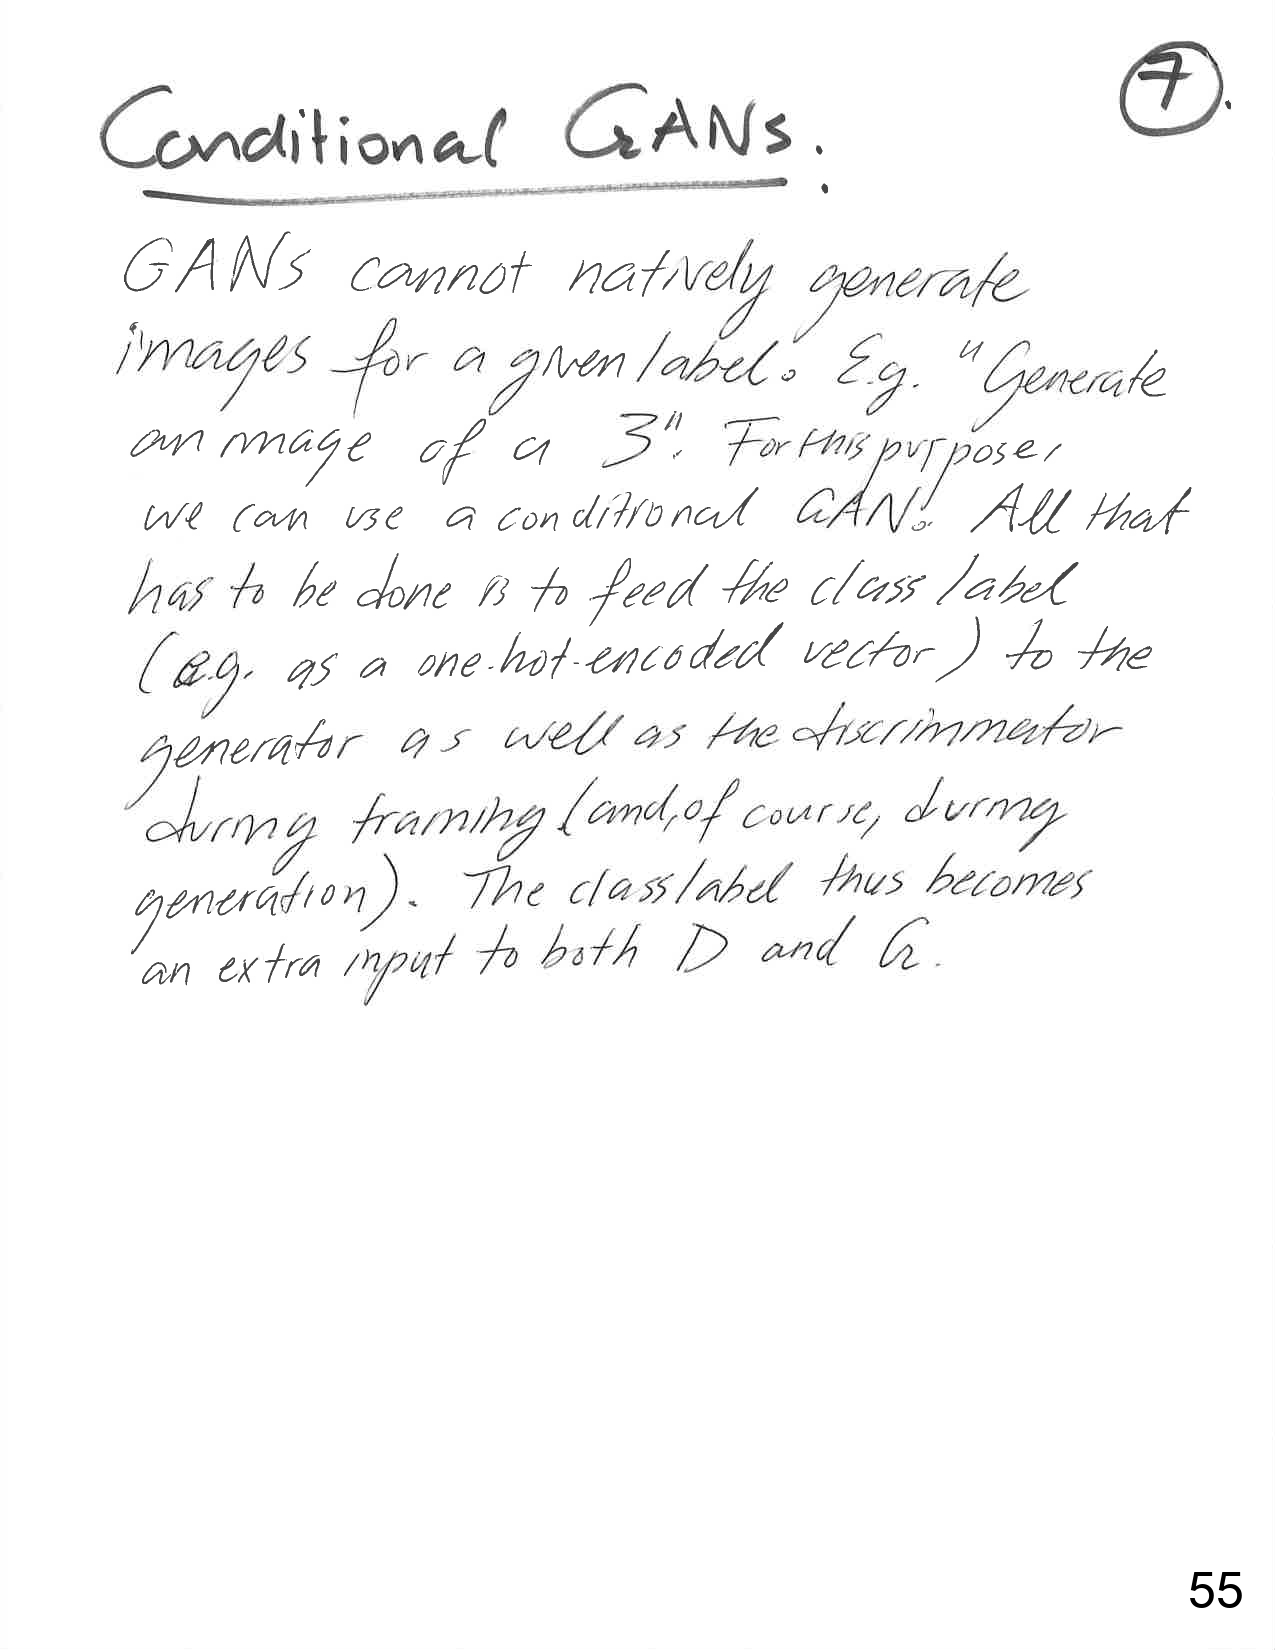 7.
Conditional GANs.
GANs cannot natively generate
images for a given label. E.g. "Generate
an image of a 3". For this purpose,
we can use a conditional GAN. All that
has to be done is to feed the class label
(e.g. as a one-hot-encoded vector) to the
generator as well as the discriminator
during training (and, of course, during
generation). The class label thus becomes
an extra input to both D and G.
55